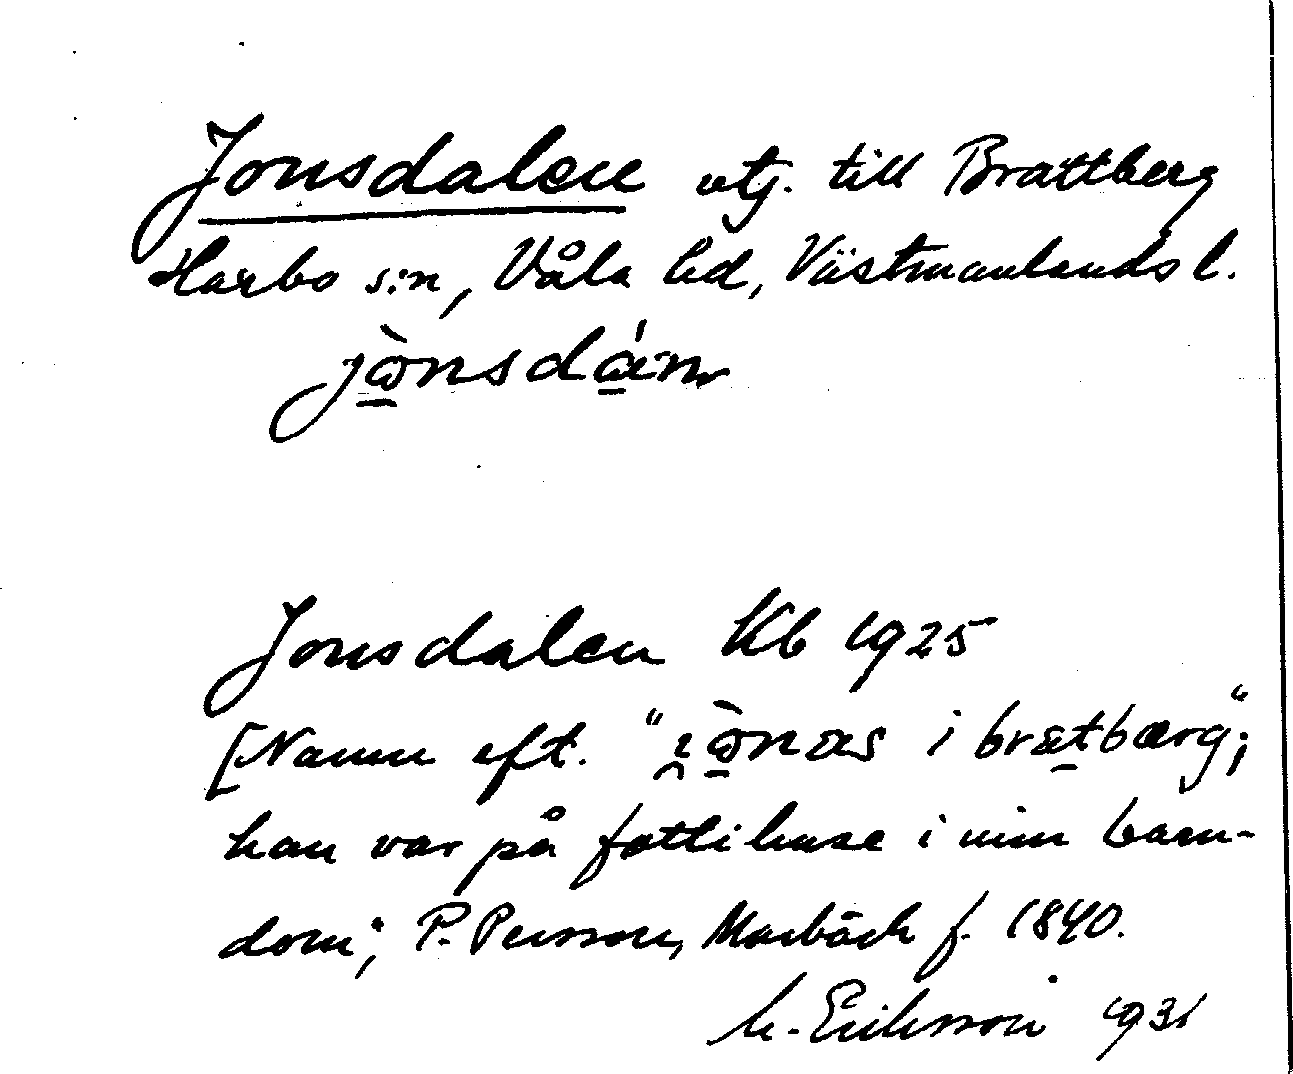 Jonsdalen utj. till Brattberg
Harbo s:n, Våla hd, Västmanlands l.
jònsdán
Jonsdalen Kb 1925
[Namn eft. "jònas i brætbærg";
han var på fattihuse i min barn-
dom; P. Persson, Marbäck f. 1840.
M. Eriksson 1931